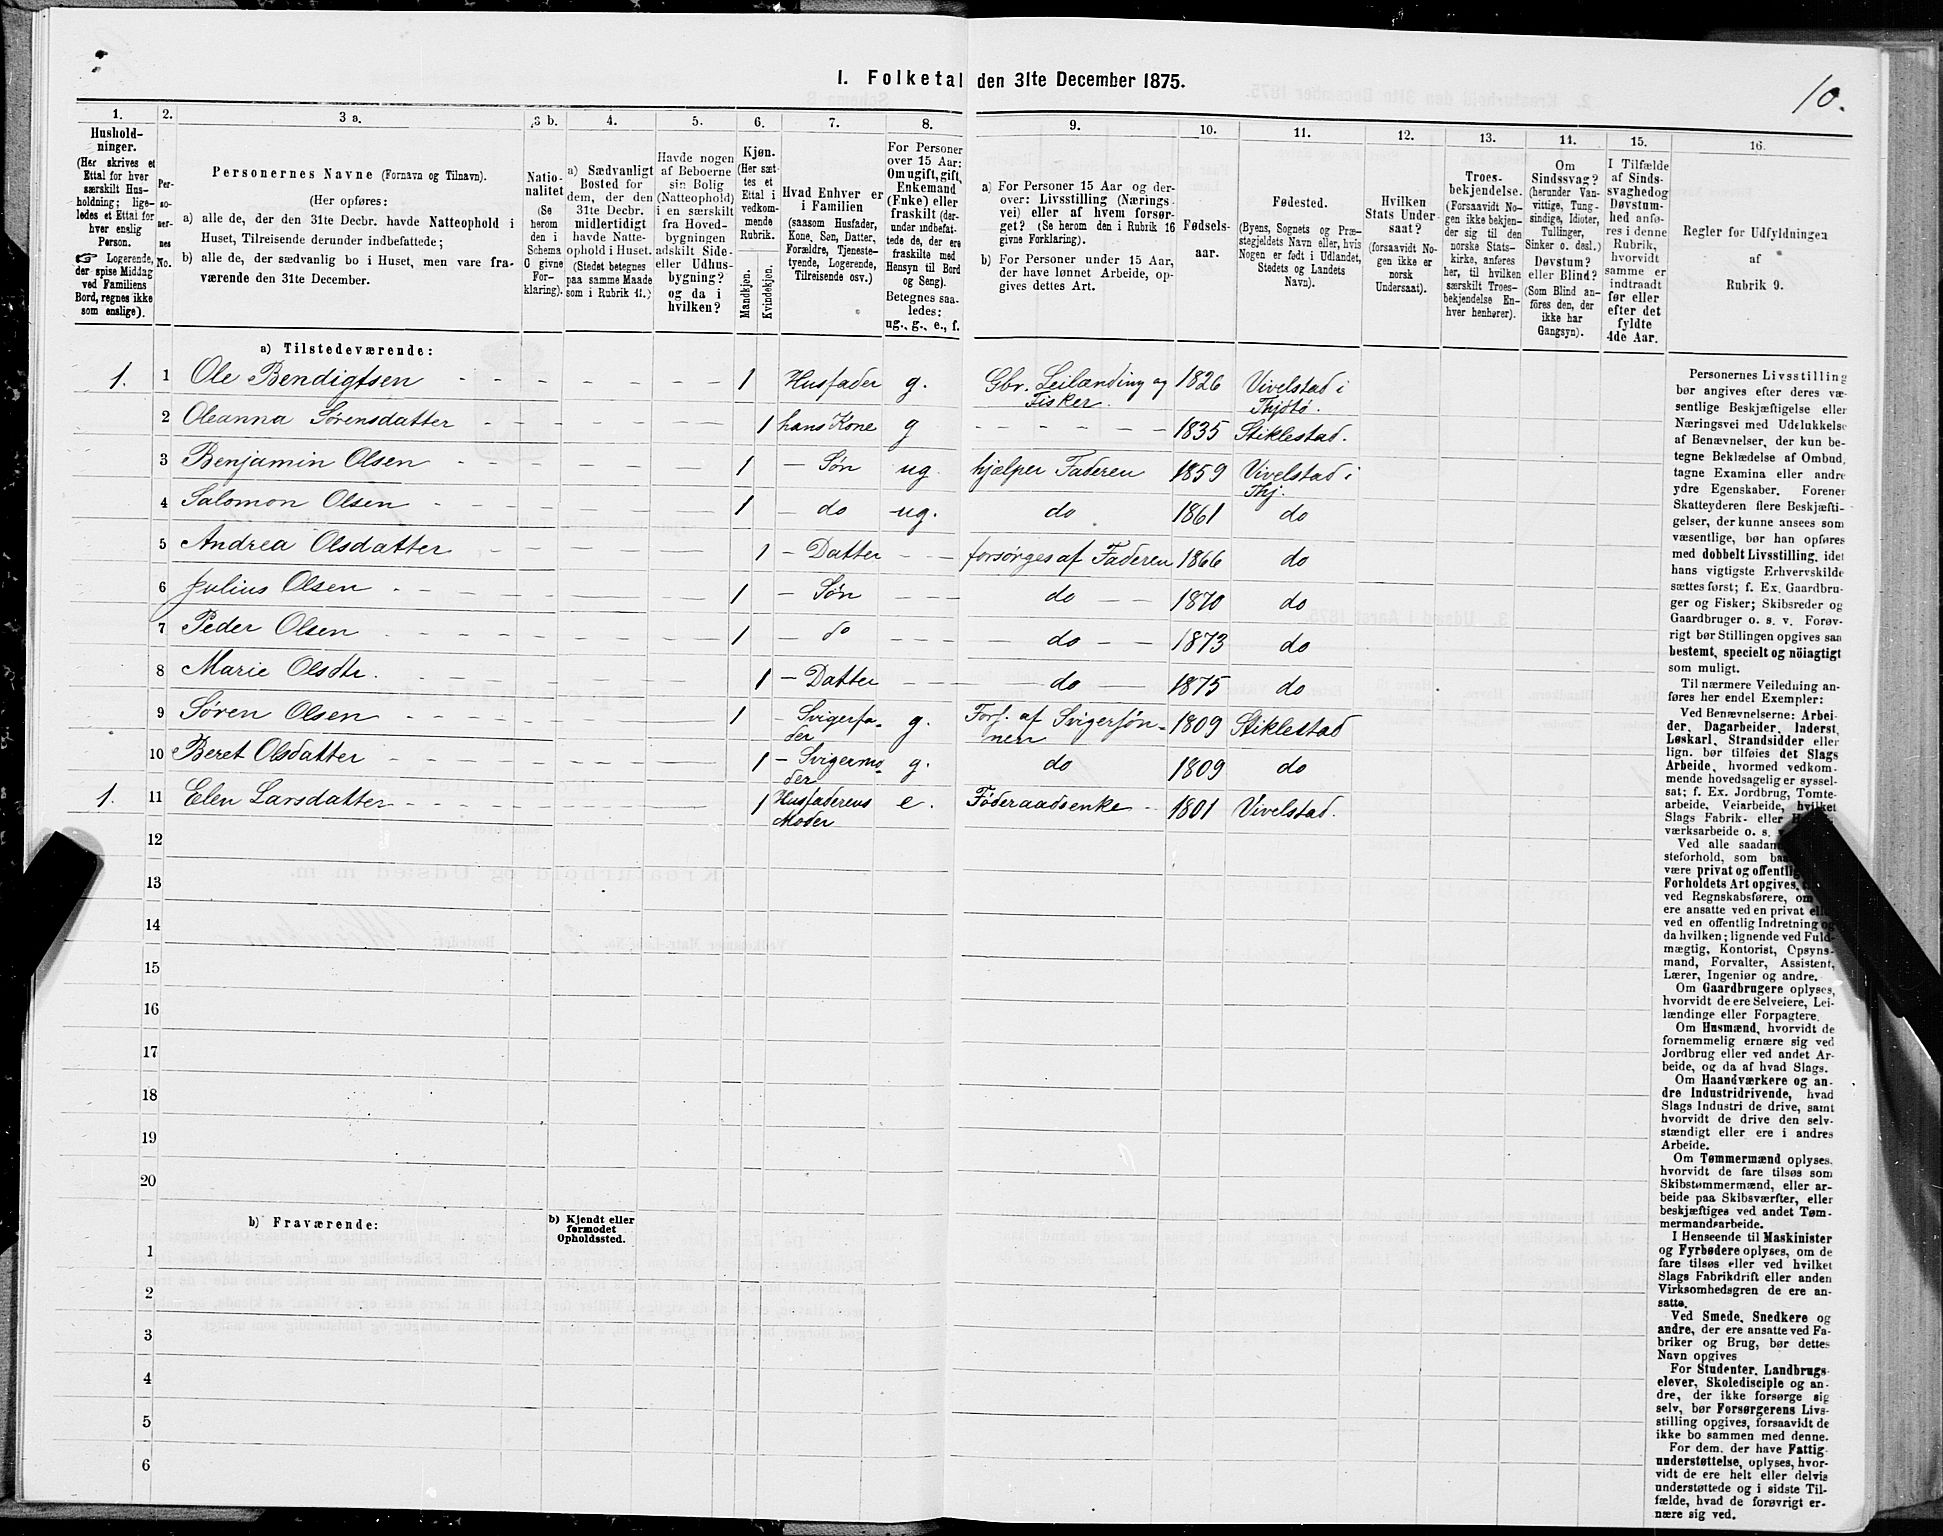 10.
1. Folketal den 31te December 1875.
1. 2. 3 a. 3 b. 4. 5. 6. 7. 8. 9. 10. 11. 12. 13. 14. 15. 16.
Hushold-
ninger.
(Her skrives et
Ettal for hver
særskilt Hus-
holdning; lige-
ledes et Ettal for
hver enslig
Person.
☞ Logerende,
der spise Middag
ved Familiens
Bord, regnes ikke
som enslige).
Per-
so-
ner-
nes
No.
Personernes Navne (Fornavn og Tilnavn).
(Her opføres:
a) alle de, der den 31te Decbr. havde Natteophold i
Huset, Tilreisende derunder indbefattede;
b) alle de, der sædvanlig bo i Huset, men vare fra-
værende den 31te December.
Natio-
nalitet
(Se
herom
den i
Schema
O givne
For-
klaring).
a) Sædvanligt
Bosted for
dem, der den
31te Decbr.
midlertidigt
havde Natte-
ophold i Huset.
(Stedet betegnes
paa samme Maade
som i Rubrik 11.)
Havde nogen
af Beboerne
sin Bolig
(Natteophold)
i en særskilt
fra Hoved-
bygningen
adskilt Side-
eller Udhus-
bygning?
og da i
hvilken?
Kjøn.
(Her sæt-
tes et
Ettal i
vedkom-
mende
Rubrik.
Mandkjøn.
Kvindekjøn.
Hvad Enhver er
i Familien
(saasom Husfader,
Kone, Søn, Datter,
Forældre, Tjeneste-
tyende, Logerende,
Tilreisende osv.)
For Personer
over 15 Aar:
Om ugift, gift,
Enkemand
(Enke) eller
fraskilt (der-
under indbefat-
tede de, der ere
fraskilte med
Hensyn til Bord
og Seng).
Betegnes saa-
ledes:
ug., g., e., f.
a) For Personer 15 Aar og der-
over: Livsstilling (Nærings-
vei) eller af hvem forsør-
get? (Se herom den i Rubrik 16
givne Forklaring).
b) For Personer under 15 Aar,
der have lønnet Arbeide, op-
gives dettes Art.
Fødsels-
aar.
Fødested.
(Byens, Sognets og Præ-
stegjeldets Navn eller, hvis
Nogen er født i Udlandet,
Stedets og Landets
Navn).
Hvilken
Stats Under-
saat?
(forsaavidt No-
gen ikke er
norsk
Undersaat).
Troes-
bekjendelse.
(Forsaavidt No-
gen ikke bekjen-
der sig til den
norske Stats-
kirke, anføres
her, til hvilken
særskilt Troes-
bekjendelse En-
hver henhører).
Om
Sindssvag?
(herunder Van-
vittige, Tung-
sindige, Idioter,
Tullinger,
Sinker o. desl.)
Døvstum?
eller Blind?
(Som Blind an-
føres den, der
ikke har
Gangsyn).
I Tilfælde
af Sinds-
svaghed og
Døvstum-
hed anfø-
res i denne
Rubrik,
hvorvidt
samme er
indtraadt
før eller
efter det
fyldte
4de Aar.
Regler for Udfyldningen
af
Rubrik 9.
a) Tilstedeværende:
1. 1 Ole Bendigtsen 1 Husfader g. Gbr. Leilænding og Fisker. 1826 Vivelstad i Thjøtø.
2 Oleanna Sørensdatter 1 hans Kone g 1835 Stiklestad.
3 Benjamin Olsen 1 – Søn ug. hjælper Faderen 1859 Vivelstad i Thj.
4 Salomon Olsen 1 – do ug. do 1861 do
5 Andrea Olsdatter 1 – Datter forsørges af Faderen 1866 do
6 Julius Olsen 1 – Søn do 1870 do
7 Peder Olsen 1 – do do 1873 do
8 Marie Olsdtr. 1 – Datter do 1875 do
9 Søren Olsen 1 – Svigerfa- der g. Fors. af Svigersøn- nen 1809 Stiklestad
10 Beret Olsdatter 1 – Svigermo- der g. do 1809 do
1. 11 Elen Larsdatter 1 Husfaderens Moder e. Føderaadsenke 1801 Vivelstad.
12
13
14
15
16
17
18
19
20
b) Fraværende:
b) Kjendt eller
formodet
Opholdssted.
1
2
3
4
5
6
Personernes Livsstilling
bør angives efter deres væ-
sentlige Beskjæftigelse eller
Næringsvei med Udelukkelse
af Benævnelser, der kun be-
tegne Beklædelse af Ombud,
tagne Examina eller andre
ydre Egenskaber. Forener
Skatteyderen flere Beskjæfti-
gelser, der kunne ansees som
væsentlige, bør han opføres
med dobbelt Livsstilling, idet
hans vigtigste Erhvervskilde
sættes først; f. Ex. Gaardbru-
ger og Fisker; Skibsreder og
Gaardbruger o. s. v. Forøv-
rigt bør Stillingen opgives saa
bestemt, specielt og nöiagtigt
som muligt.
Til nærmere Veiledning an-
føres her endel Exempler:
Ved Benævnelserne: Arbei-
der, Dagarbeider, Inderst,
Løskarl, Strandsidder eller
lign. bør tilføies det Slags
Arbeide, hvormed vedkom-
mende hovedsagelig er syssel-
sat; f. Ex. Jordbrug, Tomte-
arbeide, Veiarbeide, hvilket
Slags Fabrik- eller
værksarbeide o. s.
Ved alle saadan
steforhold, som
være privat og offentlig
Forholdets Art opgives,
ved Regnskabsførere, om
ere ansatte ved en privat
ved en offentlig Indretning og
da hvilken; lignende ved Fuld-
mægtig, Kontorist, Opsyns-
mand, Forvalter, Assistent,
Lærer, Ingeniør og andre.
Om Gaardbrugere oplyses,
hvorvidt de ere Selveiere, Lei-
lændinge eller Forpagtere.
Om Husmænd, hvorvidt de
fornemmelig ernære sig ved
Jordbrug eller ved andet Ar-
beide, og da af hvad Slags.
Om Haandværkere og an-
dre Industridrivende, hvad
Slags Industri de drive, samt
hvorvidt de drive den selv-
stændigt eller ere i andres
Arbeide.
Om Tømmermænd oplyses,
hvorvidt de fare tilsøs som
Skibstømmermænd, eller ar-
beide paa Skibsværfter, eller
beskjæftiges ved andet Tøm-
mermandsarbeide.
I Henseende til Maskinister
og Fyrbødere oplyses, om de
fare tilsøs eller ved hvilket
Slags Fabrikdrift eller anden
Virksomhedsgren de ere an-
satte.
Ved Smede, Snedkere og
andre, der ere ansatte ved Fa-
briker og Brug, bør dettes
Navn opgives
For Studenter, Landbrugs-
elever, Skoledisciple og an-
dre, der ikke forsørge sig
selv, bør Forsørgerens Livs-
stilling opgives, forsaavidt de
ikke bo sammen med denne.
For dem, der have Fattig-
understøttelse, oplyses, hvor-
vidt de ere helt eller delvis
understøttede og i sidste Til-
fælde, hvad de forøvrigt er-
nære sig ved.